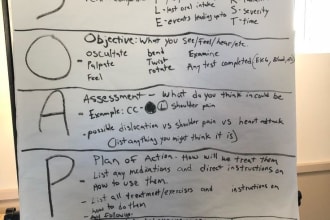 S
L- last oral intake
E- events leading up
S- Severity
T- Time
O
Objective: What you see/feel/hear/etc.
- oscultate bend Examine
- Palpate Twist Any test completed (EKG,
Feel rotate
A
Assessment - What do you think is could be
- Example: CC- (L) shoulder pain
- possible dislocation vs shoulder pain vs heart attack
(list anything you might think it is)
P
Plan of Action. How will we treat them
- List any mediations and direct instructions on
How to use them.
- List all treatment/exercises and instructions on
how to do them